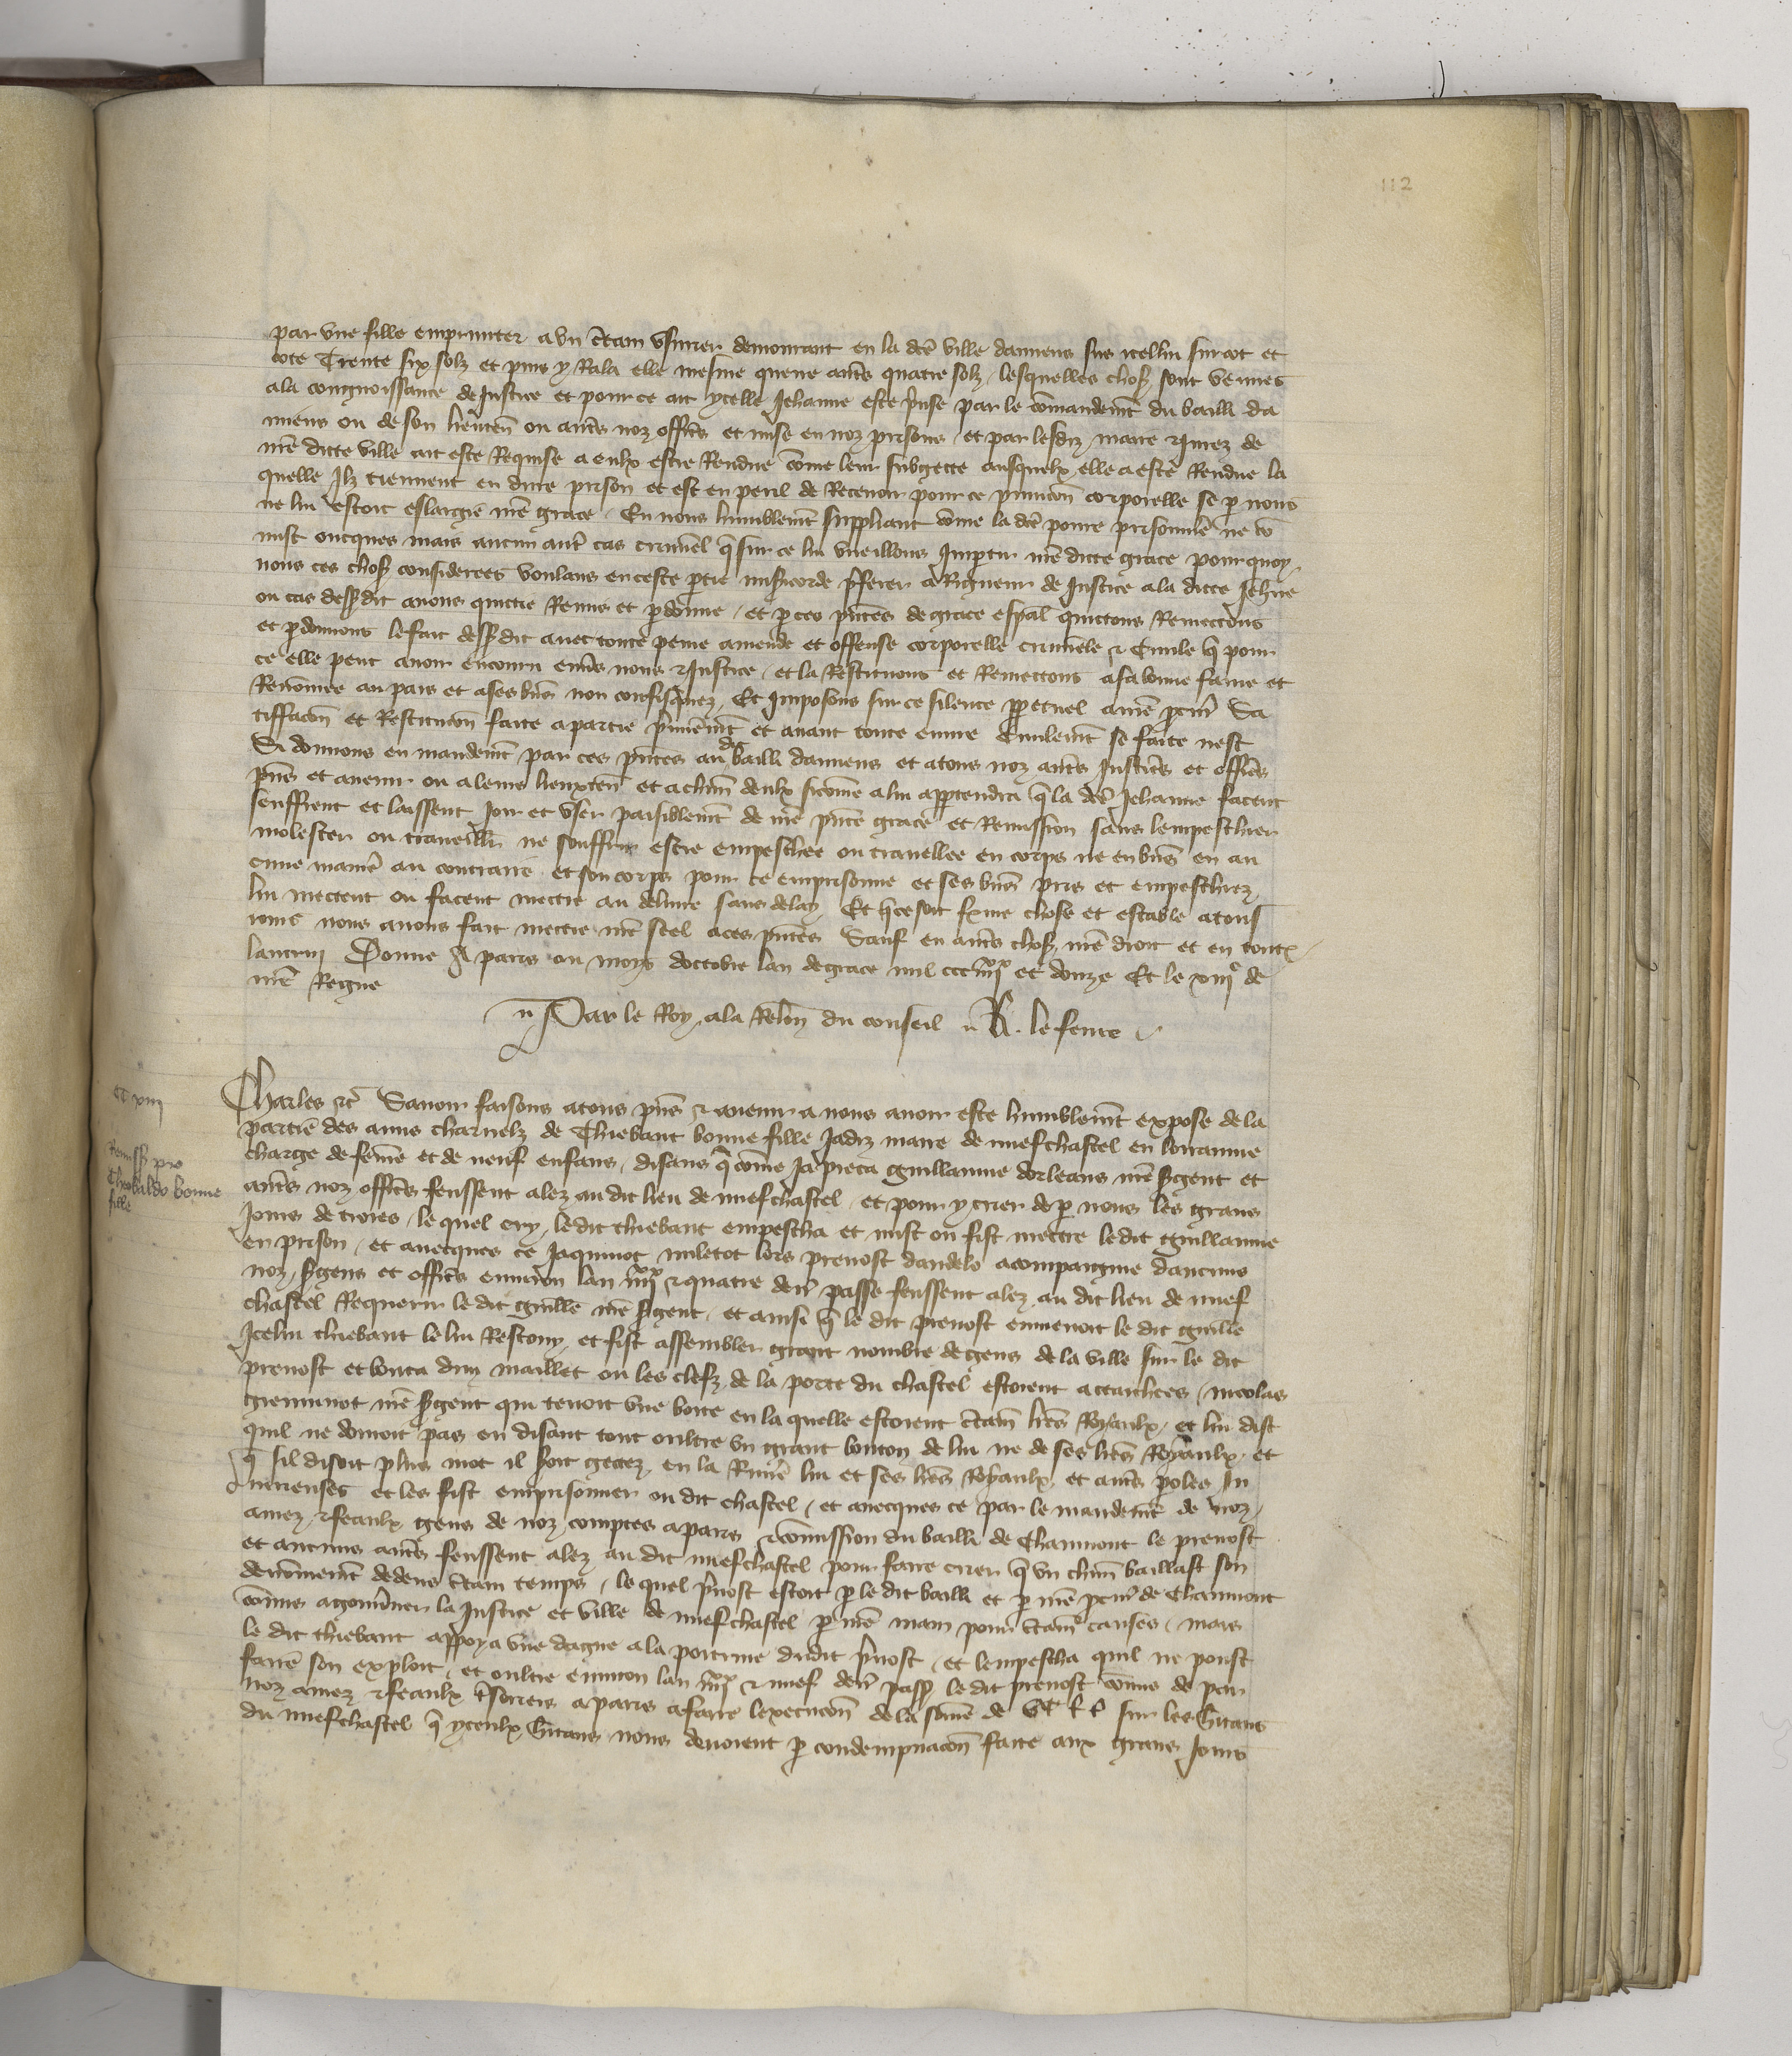 112
par une fille emprunter a un c̃tain usurier demourant en la dc̃e ville damiens sus icellui surcot et
cote Trente six solz et puis y Rala elle mesme querre autr̃s quatre solz / lesquelles chos̃ sont venues
a la congnoissance de Justice et pour ce ait ycelle Jehanne este p̃nse par le com̃andemẽt du bailli da
miens ou de son lieuten̄ ou autr̃s noz offic̃rs et mise en noz prisons / et par lesdiz maire & Jurez de
nr̃e dicte ville ait este Requise a eulx estre Rendue com̃e leur subgecte ausquelx elle a este Rendue la
quelle Ilz tiennent en dure prison et est en peril de Recevoir pour ce punicion̄ corporelle se p nous
ne lui estoit eslargie nr̃e grace / En nous humblemẽt suppliant com̃e la dc̃e povre prisonniere ne co
mist oncques mais aucun autr̃ cas criminel q̃ sur ce lui vueillons Impartir nr̃e dicte grace pour quoy
nous ces chos̃ considerees voulans en ceste ptie misericorde p̃ferer a Rigueur de Justice a la dicte Jehñe
ou cas dessusdit avons quictie Remis et pdonne / et p ces p̃ntes de grace esp̃al quictons Remectons
et pdonnons le fait dessusdit avec toute peine amende et offense corporelle criminele & Civile q̃ pour
ce elle peut avoir encouru env̾s nous & Justice / et la Restituons et Remectons a sa bonne fame et
Renom̃ee au pais et a ses biẽs non confisquez / Et Imposons sur ce silence ppetuel a nr̃e pcur̃ Sa
tiffacion̄ et Restitucion̄ faicte a partie p̃mieremẽt et avant toute euvre Civilemẽt se faicte nest
Si donnons en mandemẽt par ces p̃ntes au bailli damiens et a tous noz autr̃s Justic̃rs et offic̃rs
p̃ns et avenir ou a leurs lieuxten̄ et a chũn deulx sicom̃e a lui appartendra q̃ la dc̃e Jehanne facent
seuffrent et laissent Joir et user paisiblemẽt de nr̃e p̃nte grace et Remission sans lempeschier
molester ou travaillier ne souffrir estre empeschee ou travaillee en corps ne en biẽs en au
cune manier̃ au contraire et son corps pour ce emprisonne et ses biẽs pris et empeschiez
lui mectent ou facent mectre au delivre sans delay Et q̃ ce soit ferme chose et estable a tous
jours nous avons fait mectre nr̃e scel a ces p̃ntes Sauf en autr̃s chos̃ nr̃e droit et en toutes
lautruy Donne A paris ou moys doctobre lan de grace mil ccc iiiixx et douze Et le xiiie de
nr̃e Regne
Par le Roy a la Relon̄ du conseil R. le fevre
Charles &c̃ Savoir faisons a tous p̃ns & avenir a nous avoir este humblemẽt expose de la
partie des amis charnelz de Thiebaut bonne fille Jadiz maire de nuefchastel en lorrainne
charge de fem̃e et de neuf enfans / disans q̃ com̃e Ja pieca guillaume dorleans nr̃e s̃gent et
autr̃s noz offic̃rs feussent alez au dit lieu de nuefchastel / et pour y crier de p nous les grans
Jours de troies / le quel cry le dit thiebaut empescha et mist ou fist mectre le dit guillaume
en prison / et avecques ce Jaquinot miletot lors prevost dandelo acompaignie daucuns
noz s̃gens et offic̃rs environ lan iiiixx & quatre der̃ passe feussent alez au dit lieu de nuef
chastel Requerir le dit guillẽ nr̃e s̃gent / et ainsi q̃ le dit prevost enmenoit le dit guillẽ
Icelui thiebaut le lui Rescouy et fist assembler grant nombre de gens de la ville sur le dit
prevost et bouta dun maillet ou les clefz de la porte du chastel estoient attachees / nicolas
nr̃e s̃gent qui tenoit une boite en la quelle estoient c̃tain̄ lr̃es Royaulx / et lui dist
quil ne donroit pas en disant tout oultre un grant bouton de lui ne de ses lr̃es Royaulx / et
q̃ sil disoit plus mot il s̃oit gectez en la Rivier̃ lui et ses lr̃es Royaulx et autr̃s poles In
jurieuses et les fist emprisonner ou dit chastel / et avecques ce par le mandemẽt de noz
amez & feaulx gens de noz comptes a paris & com̃ission du bailli de Chaumont le prevost
et aucuns autr̃s feussent alez au dit nuefchastel pour faire crier q̃ un chũn baillast son
denombremẽt dedens c̃tain temps / le quel p̃vost estoit p le dit bailli et p nr̃e pcur̃ de Chaumont
com̃is a gouv̾ner la Justice et ville de nuefchastel p nr̃e main pour c̃tain̄ causes / mais
le dit thiebaut appoya une dague a la poitrine dudit p̃vost / et lempescha quil ne poust
faire son exploit / et oultre environ lan iiiixx & nuef der̃ pass̃ le dit prevost com̃is de par
noz amez & feaulx t̃soriers a paris a faire lexecucion̄ de la som̃e de sur les h̃itans
du nuefchastel q̃ yceulx h̃itans nous devoient p condempnacion̄ faicte aux grans Jours
Remiss̃ pro
Theobaldo bonne
fille